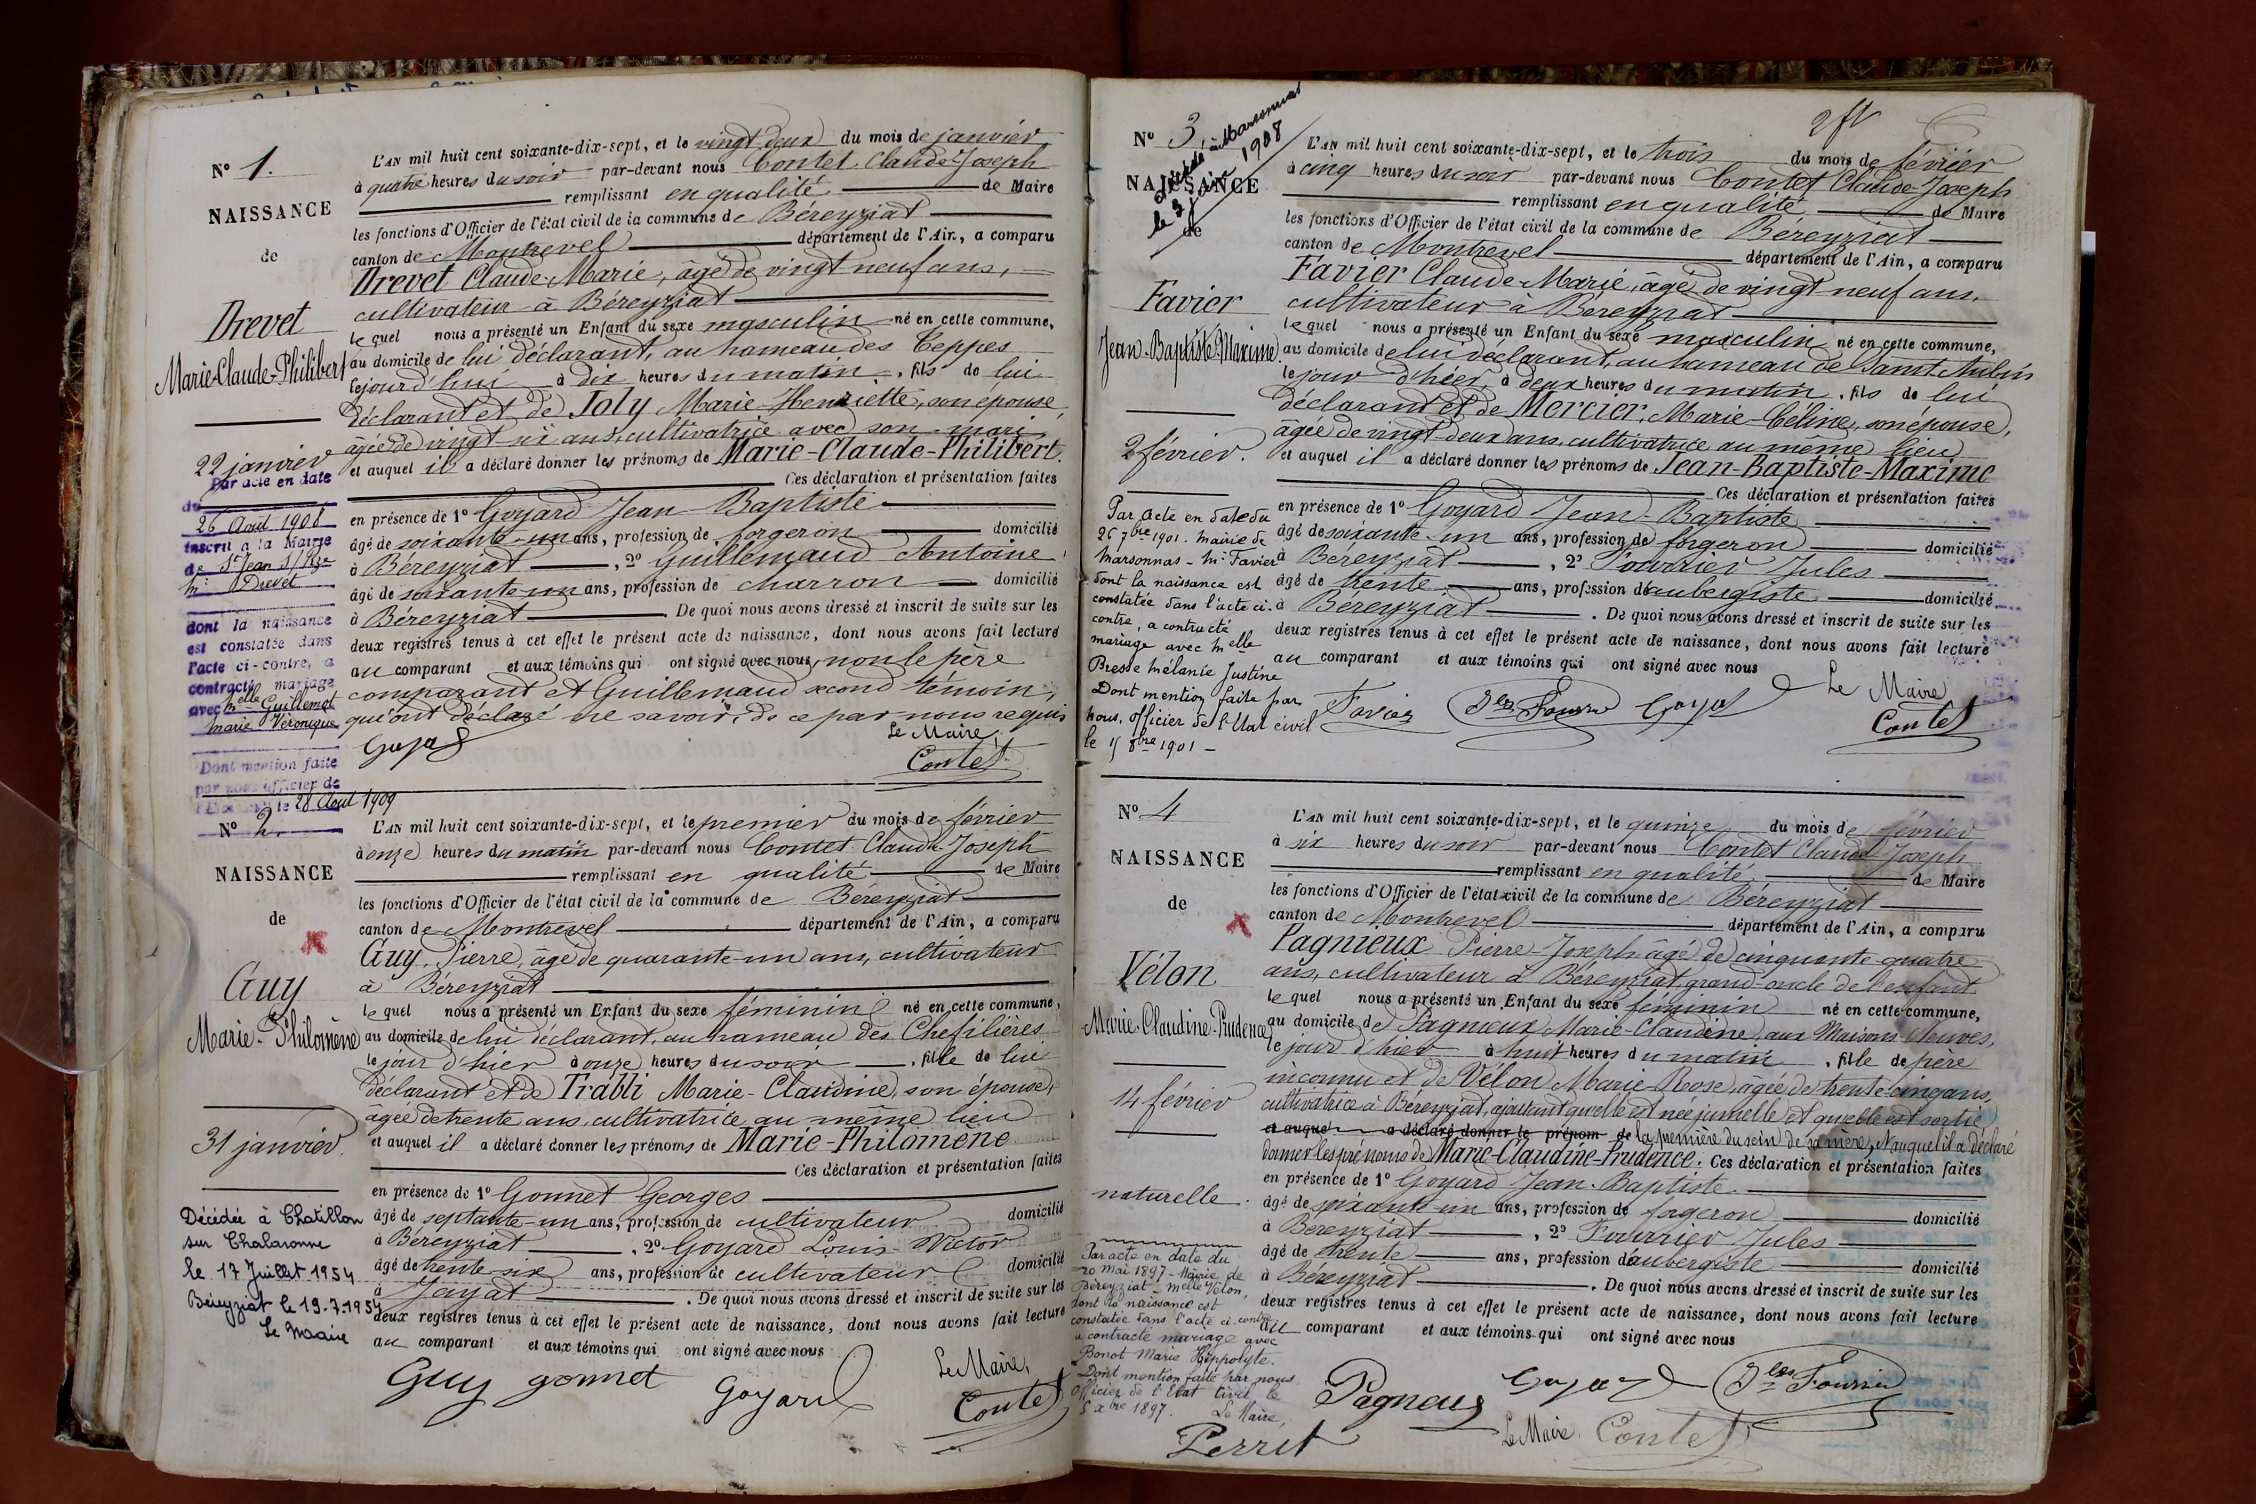 N° 1.
NAISSANCE
de
Drevet
Marie-Claude-Philibert
22 janvier
Par acte en date
du
26 Août 1908
inscrit à la Mairie
de St Jean s/ Rze
Mr Drevet
dont la naissance
est constatée dans
l'acte ci-contre, a
contracté mariage
avec Melle Guillemot
Marie Véronique
Dont mention faite
par nous officier de
le 28 Août 1909
L'AN mil huit cent soixante-dix-sept, et le vingt deux du mois de janvier
à quatre heures du soir par-devant nous Contet Claude-Joseph
remplissant en qualité de Maire
les fonctions d'Officier de l'état civil de la commune de Béreyziat
canton de Montrevel département de l'Ain, a comparu
Drevet Claude-Marie, âgé de vingt neuf ans,
cultivateur à Béreyziat
lequel nous a présenté un Enfant du sexe masculin né en cette commune,
au domicile de lui déclarant, au hameau des Teppes
le jour d'hui à dix heures du matin, fils de lui
déclarant et de Joly Marie-Henriette, son épouse,
âgée de vingt ans, cultivatrice avec son mari
et auquel il a déclaré donner les prénoms de Marie-Claude-Philibert.
Ces déclaration et présentation faites
en présence de 1° Goyard Jean Baptiste
âgé de soixante-un ans, profession de forgeron domicilié
à Béreyziat, 2° Guillemaud Antoine,
âgé de soixante-un ans, profession de charron domicilié
à Béreyziat De quoi nous avons dressé et inscrit de suite sur les
deux registres tenus à cet effet le présent acte de naissance, dont nous avons fait lecture
au comparant et aux témoins qui ont signé avec nous, non le père
comparant et Guillemaud second témoin,
qui ont déclaré ne savoir, de ce par nous requis
Goyard
Le Maire,
Contet
N° 2.
NAISSANCE
de
Guy
Marie-Philomène
31 janvier.
Décédée à Chatillon
sur Chalaronne
le 17 Juillet 1954
Béreyziat le 19-7-1954
Le Maire
L'AN mil huit cent soixante-dix-sept, et le premier du mois de février
à onze heures du matin par-devant nous Contet Claude-Joseph
remplissant en qualité de Maire
les fonctions d'Officier de l'état civil de la commune de Béreyziat
canton de Montrevel département de l'Ain, a comparu
Guy, Pierre, âgé de quarante-un ans, cultivateur
à Béreyziat
lequel nous a présenté un Enfant du sexe féminin né en cette commune,
au domicile de lui déclarant, au hameau des
le jour d'hier à onze heures du soir, fille de lui
déclarant et de Trabli Marie-Claudine, son épouse,
âgée de trente ans, cultivatrice au même lieu
et auquel il a déclaré donner les prénoms de Marie-Philomène
Ces déclaration et présentation faites
en présence de 1° Gonnet Georges
âgé de septante-un ans, profession de cultivateur domicilié
à Béreyziat, 2° Goyard Louis-Victor
âgé de trente-six ans, profession de cultivateur domicilié
à Jayat. De quoi nous avons dressé et inscrit de suite sur les
deux registres tenus à cet effet le présent acte de naissance, dont nous avons fait lecture
au comparant et aux témoins qui ont signé avec nous
Guy gonnet Goyard
Le Maire,
Contet
2
N° 3.
décédé à Marsonnas
le 3 1908
NAISSANCE
de
Favier
Jean-Baptiste-Maxime.
2 février.
Par acte en date du
26 7bre 1901. Mairie de
Marsonnas - Mr Favier
dont la naissance est
constatée dans l'acte ci-
contre, a contracté
mariage avec Melle
Presse Mélanie Justine
Dont mention faite par
nous, officier de l'Etat civil
le 8bre 1901 -
L'AN mil huit cent soixante-dix-sept, et le trois du mois de février
à cinq heures du soir par-devant nous Contet Claude-Joseph
remplissant en qualité de Maire
les fonctions d'Officier de l'état civil de la commune de Béreyziat
canton de Montrevel département de l'Ain, a comparu
Favier Claude-Marie, âgé de vingt neuf ans,
cultivateur à Béreyziat
lequel nous a présenté un Enfant du sexe masculin né en cette commune,
au domicile de lui déclarant, au hameau de Saint Aubin
le jour d'hier, à deux heures du matin, fils de lui
déclarant et de Mercier, Marie-Céline, son épouse,
âgée de vingt-deux ans, cultivatrice au même lieu
et auquel il a déclaré donner les prénoms de Jean-Baptiste-Maxime
Ces déclaration et présentation faites
en présence de 1° Goyard Jean-Baptiste
âgé de soixante-un ans, profession de forgeron domicilié
à Béreyziat, 2° Fourrier Jules
âgé de trente ans, profession d'aubergiste domicilié
à Béreyziat. De quoi nous avons dressé et inscrit de suite sur les
deux registres tenus à cet effet le présent acte de naissance, dont nous avons fait lecture
au comparant et aux témoins qui ont signé avec nous
Favier Jles Fourrier Goyard
Le Maire
Contet
N° 4
NAISSANCE
de
Vélon
Marie-Claudine-Prudence
14 février
naturelle.
Par acte en date du
20 Mai 1897 - Mairie de
Béreyziat - Melle Vélon,
dont la naissance est
constatée dans l'acte ci-contre
a contracté mariage avec
Bonot Marie Hippolyte.
Dont mention faite par nous
Officier de l'Etat Civil le
5 xbre 1897. Le Maire,
Perret
L'AN mil huit cent soixante-dix-sept, et le quinze du mois de février
à six heures du soir par-devant nous Contet Claude Joseph
remplissant en qualité de Maire
les fonctions d'Officier de l'état civil de la commune de Béreyziat
canton de Montrevel département de l'Ain, a comparu
Pagnieux Pierre-Joseph âgé de cinquante-quatre
ans, cultivateur à Béreyziat, grand-oncle de l'enfant
lequel nous a présenté un Enfant du sexe féminin né en cette commune,
au domicile de Pagnieux Marie-Claudine, aux Maisons Neuves,
le jour d'hier à huit heures du matin, fille de père
inconnu et de Vélon Marie-Rose, âgée de trente-cinq ans,
cultivatrice à Béreyziat, ajoutant qu'elle est née jumelle et qu'elle est sortie
et auquel a déclaré donner le prénom de la première du sein de sa mère, et auquel il a déclaré
donner les prénoms de Marie-Claudine-Prudence. Ces déclaration et présentation faites
en présence de 1° Goyard Jean-Baptiste
âgé de soixante-un ans, profession de forgeron domicilié
à Béreyziat, 2° Fourrier Jules
âgé de trente ans, profession d'aubergiste domicilié
à Béreyziat. De quoi nous avons dressé et inscrit de suite sur les
deux registres tenus à cet effet le présent acte de naissance, dont nous avons fait lecture
au comparant et aux témoins qui ont signé avec nous
Pagneux Goyard Jles Fourrier
Le Maire. Contet